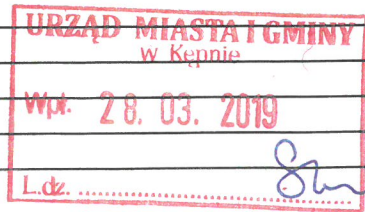 URZĄD MIASTA I GMINY
w Kępnie
Wpł. 28. 03. 2019
L.dz. ........................................